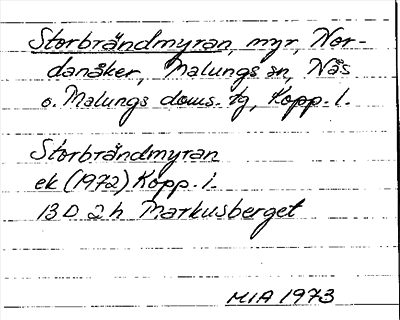 Storbrändmyran, myr, Nor-
danåker, Malungs sn, Nås
o. Malungs doms. tg, Kopp. l.
Storbrändmyran
ek (1972) Kopp. l.
13 D 2 h Markusberget
MIA 1973